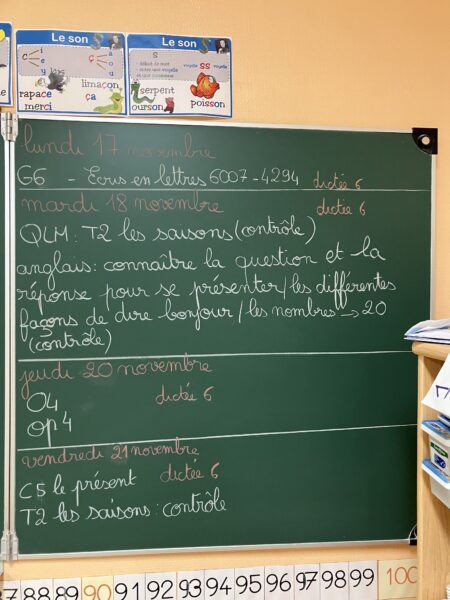 Le son
c
i
e
y
ç
a
o
u
rapace
merci
limaçon
ça
Le son
s
ss
serpent
ourson
poisson
lundi 17 novembre
G6 - Ecris en lettres 6007 - 4294 dictée 6
mardi 18 novembre dictée 6
QLM: T2 les saisons (contrôle)
anglais: connaître la question et la
réponse pour se présenter/les différentes
façons de dire bonjour/les nombres → 20
(contrôle)
jeudi 20 novembre
O4 dictée 6
op 4
vendredi 21 novembre
C5 le présent dictée 6
T2 les saisons: contrôle
88 89 90 91 92 93 94 95 96 97 98 99 100